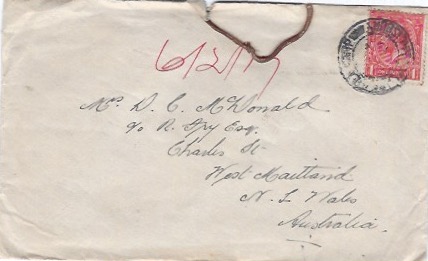 6/2/17
Mr. D. C. McDonald
c/o R. Fry Esq.
Charles St
West Maitland
N. S Wales
Australia.
1 1